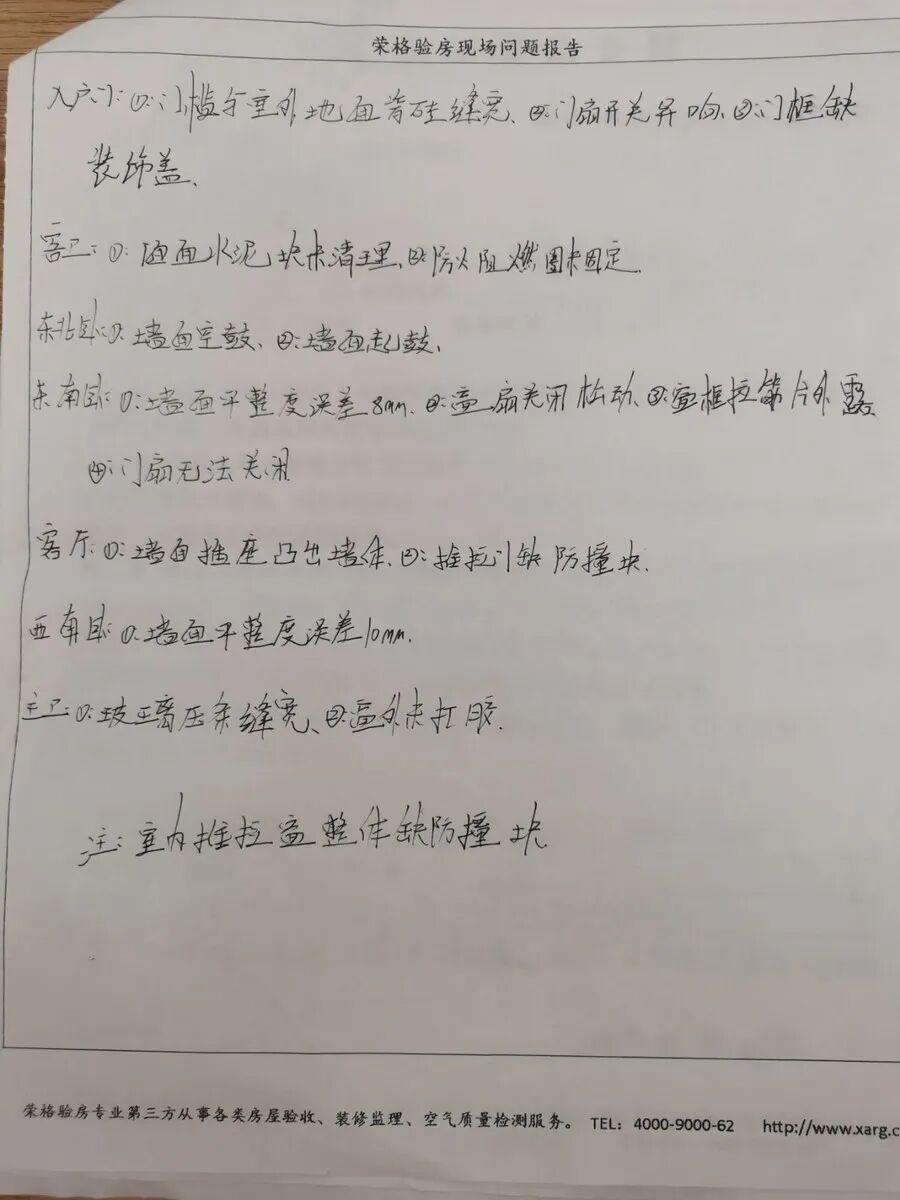 荣格验房现场问题报告
入户门: ①: 门槛与室外地面瓷砖缝宽、②: 门扇开关异响、③: 门框缺
装饰盖、
客卫: ①: 墙面水泥块未清理、②: 防火阻燃圈未固定.
东北卧: ①: 墙面空鼓、②: 墙面起鼓、
东南卧: ①: 墙面平整度误差8mm. ②: 窗扇关闭松动、③: 窗框拉锚片外露、
④: 门扇无法关闭
客厅: ①: 墙面插座凸出墙体、②: 推拉门缺防撞块.
西南卧: ①: 墙面平整度误差10mm.
主卫: ①: 玻璃压条缝宽、②: 窗外未打胶.
注: 室内推拉窗整体缺防撞块
荣格验房专业第三方从事各类房屋验收、装修监理、空气质量检测服务。 TEL: 4000-9000-62 http://www.xarg.c